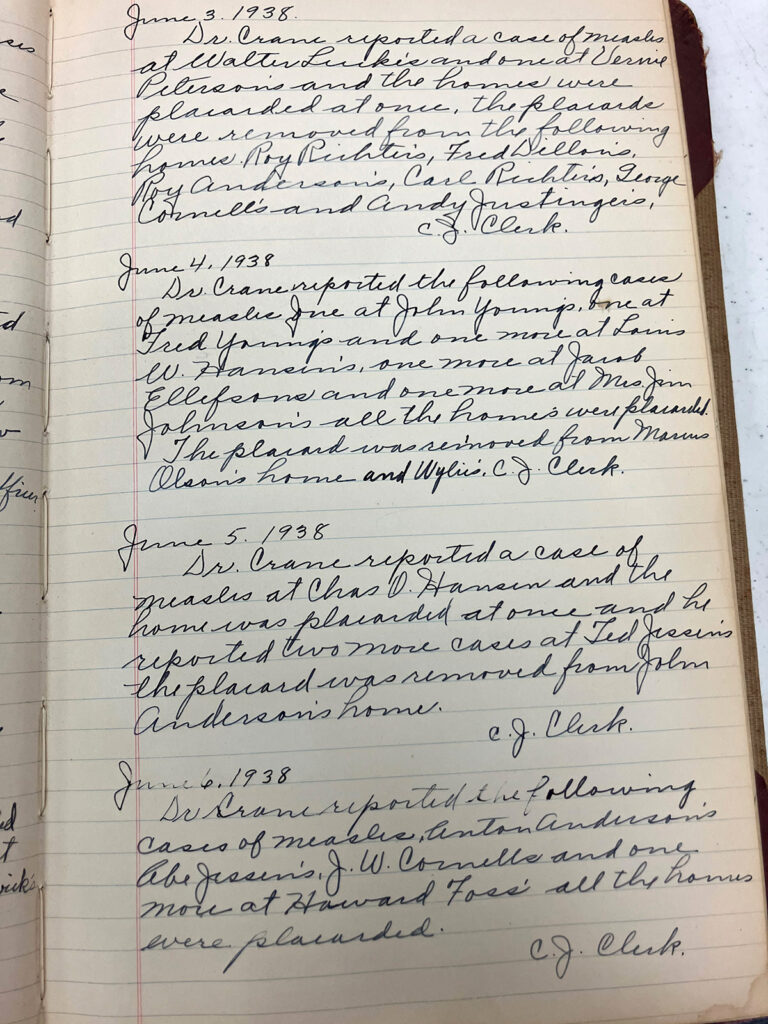 June 3. 1938.
Dr. Crane reported a case of measles
at Walter Luckis and one at Vernie
Petersons and the homes were
placarded at once, the placards
were removed from the following
homes Roy Richter's, Fred Dillon's,
Roy Anderson's, Carl Richter's, George
Cornell's and Andy Justinger's,
C. J. Clerk.
June 4, 1938
Dr. Crane reported the following cases
of measles One at John Young's, one at
Fred Young's and one more at Louis
W. Hansen's, one more at Jacob
Ellefsons and one more at Mrs. Jim
Johnson's all the homes were placarded.
The placard was removed from Marius
Olson's home and Wylie's. C. J. Clerk.
June 5. 1938
Dr. Crane reported a case of
measles at Chas O. Hansen and the
home was placarded at once and he
reported two more cases at Ted Jessen's
the placard was removed from John
Anderson's home.
C. J. Clerk.
June 6, 1938
Dr Crane reported the following
cases of measles, Anton Anderson's
Abe Jessen's, J. W. Cornells and one
more at Howard Foss' all the homes
were placarded.
C. J. Clerk.